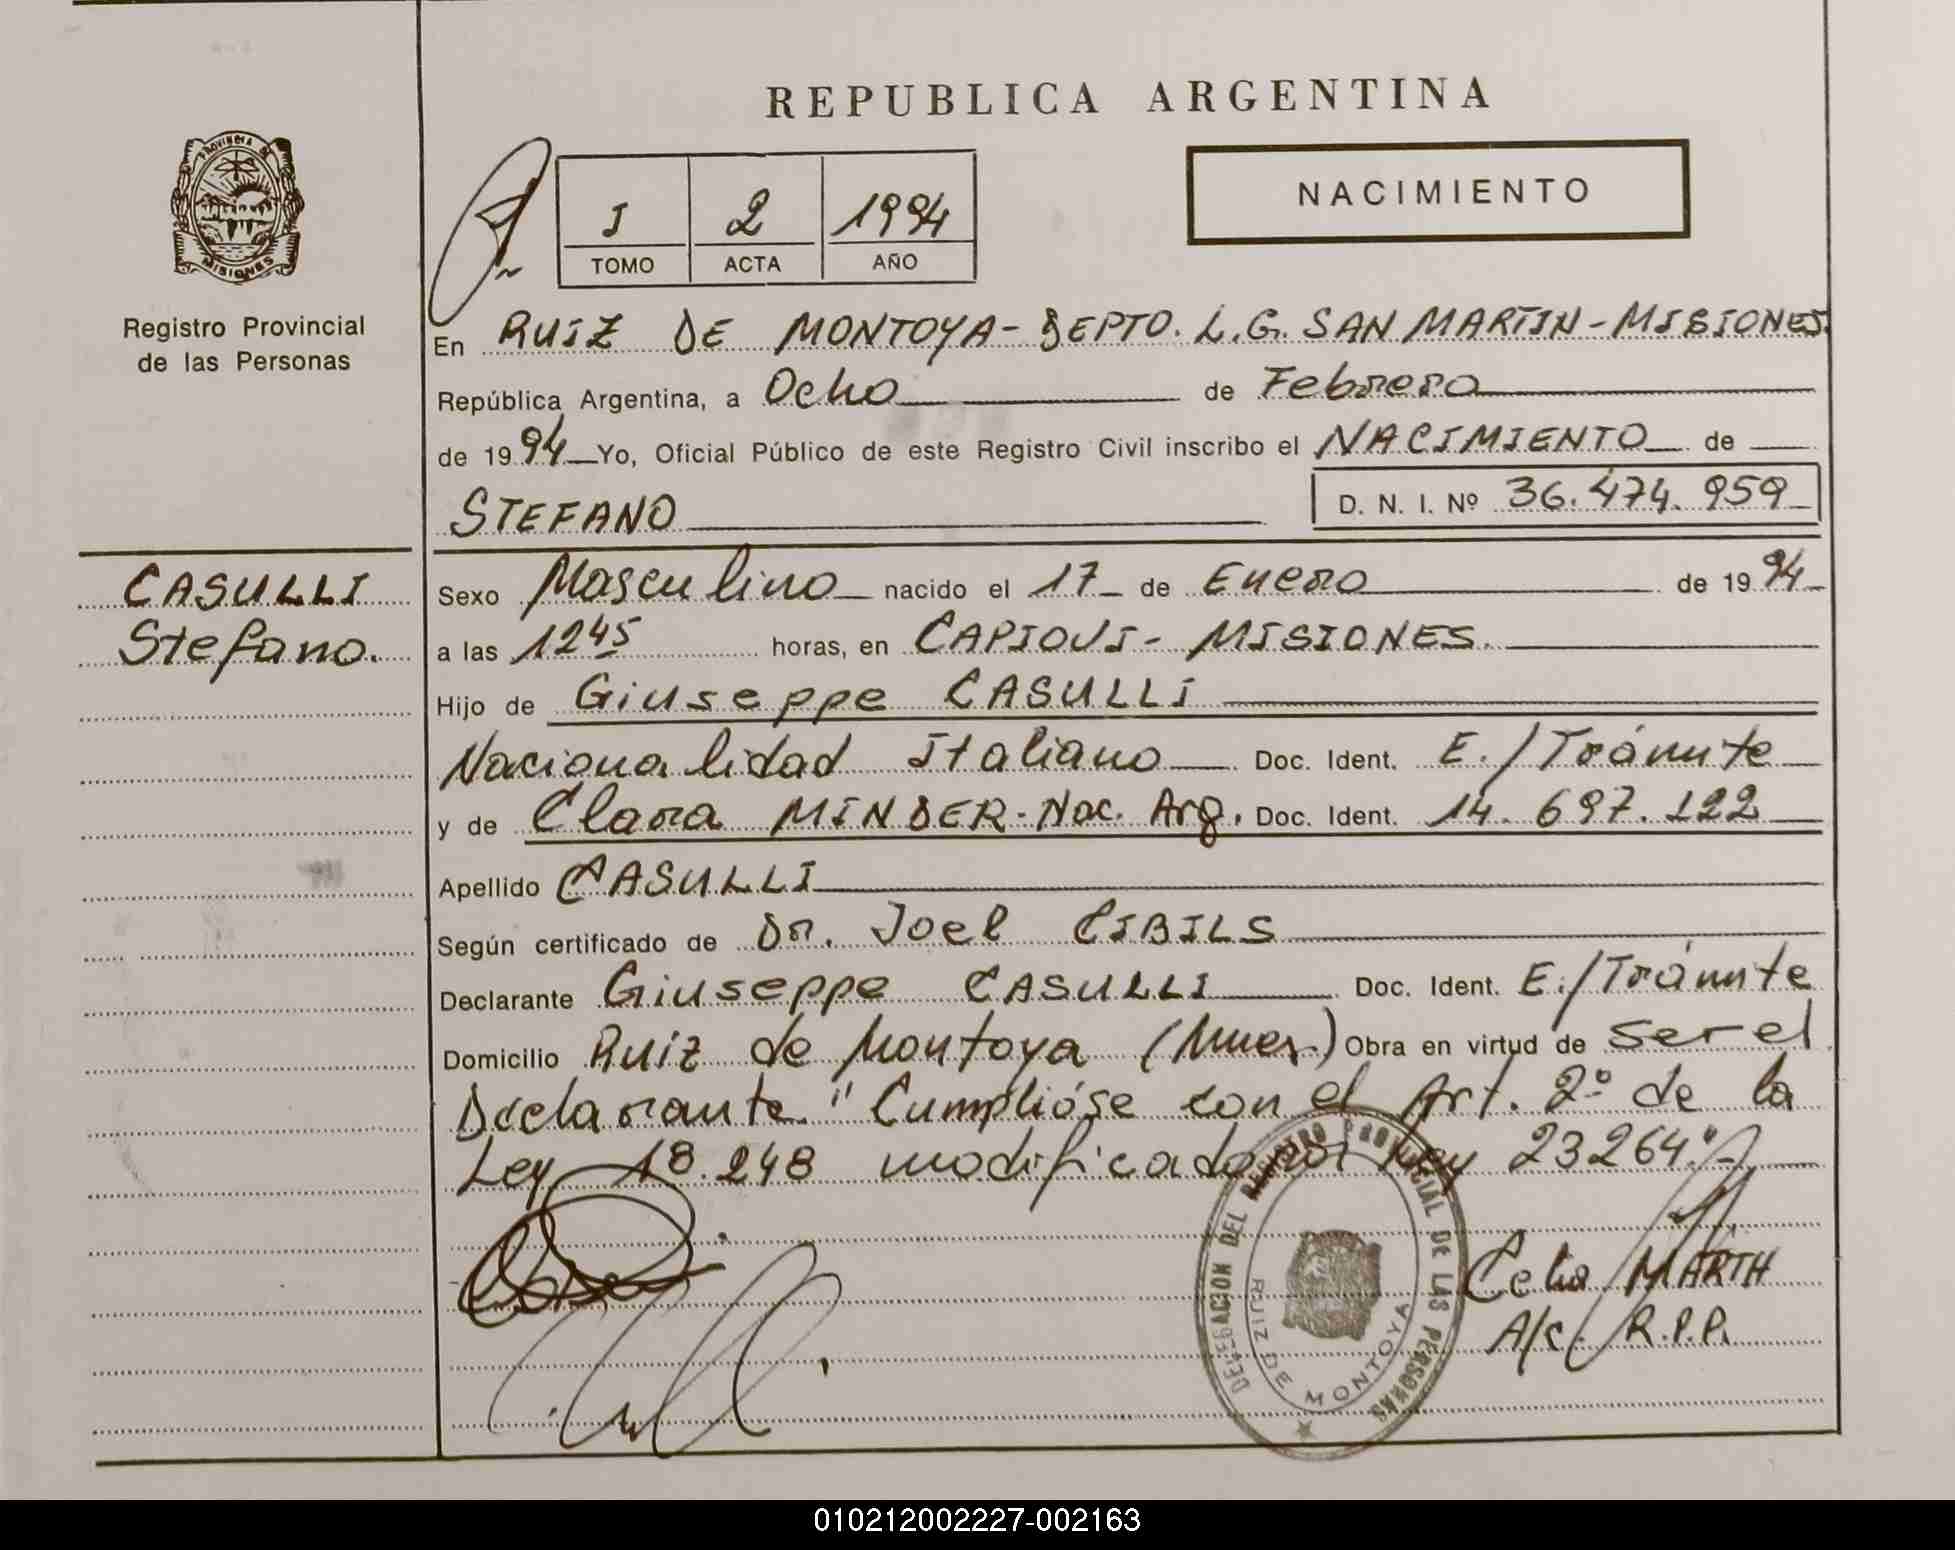 REPUBLICA ARGENTINA
PROVINCIA DE
MISIONES
Registro Provincial
de las Personas
I 2 1994
TOMO ACTA AÑO
NACIMIENTO
En RUIZ DE MONTOYA - DEPTO. L.G. SAN MARTIN - MISIONES.
República Argentina, a Ocho de Febrero
de 1994 Yo, Oficial Público de este Registro Civil inscribo el NACIMIENTO de
STEFANO D. N. I. Nº 36.474.959
CASULLI
Stefano.
Sexo Masculino nacido el 17 de Enero de 1994
a las 12 45 horas, en CAPIOVI - MISIONES.
Hijo de Giuseppe CASULLI
Nacionalidad Italiano Doc. Ident. E./Trámite
y de Clara MINDER - Nac. Arg. Doc. Ident. 14.697.122
Apellido CASULLI
Según certificado de Dr. Joel CIBILS
Declarante Giuseppe CASULLI Doc. Ident. E./Trámite
Domicilio Ruiz de Montoya (Mnes.) Obra en virtud de ser el
Declarante. "Cumplióse con el Art. 2º de la
Ley 18.248 modificado por Ley 23264".-
DELEGACION DEL REGISTRO PROVINCIAL DE LAS PERSONAS
RUIZ DE MONTOYA
Celia MARTH
A/c. R.P.P.
010212002227-002163